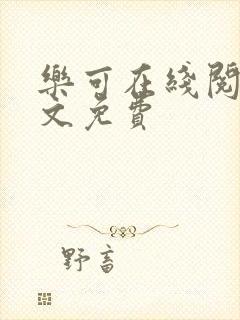 樂可在綫閱
文免費
野畜